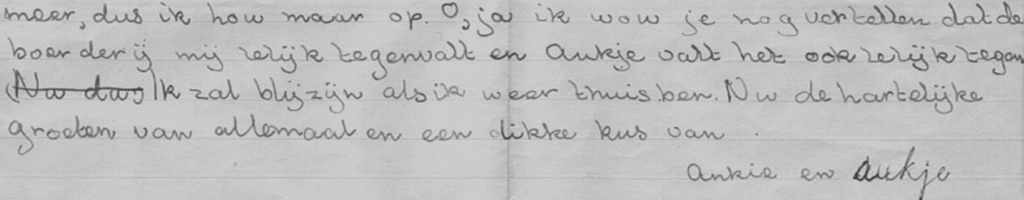 meer, dus ik how maar op. O, ja ik wow je nog vertellen dat de
boerderij mij lelijk tegenvalt en Aukje valt het ook lelijk tegen
(Nu das) Ik zal blij zijn als ik weer thuis ben. Nu de hartelijke
groeten van allemaal en een dikke kus van .
Ankie en Aukje